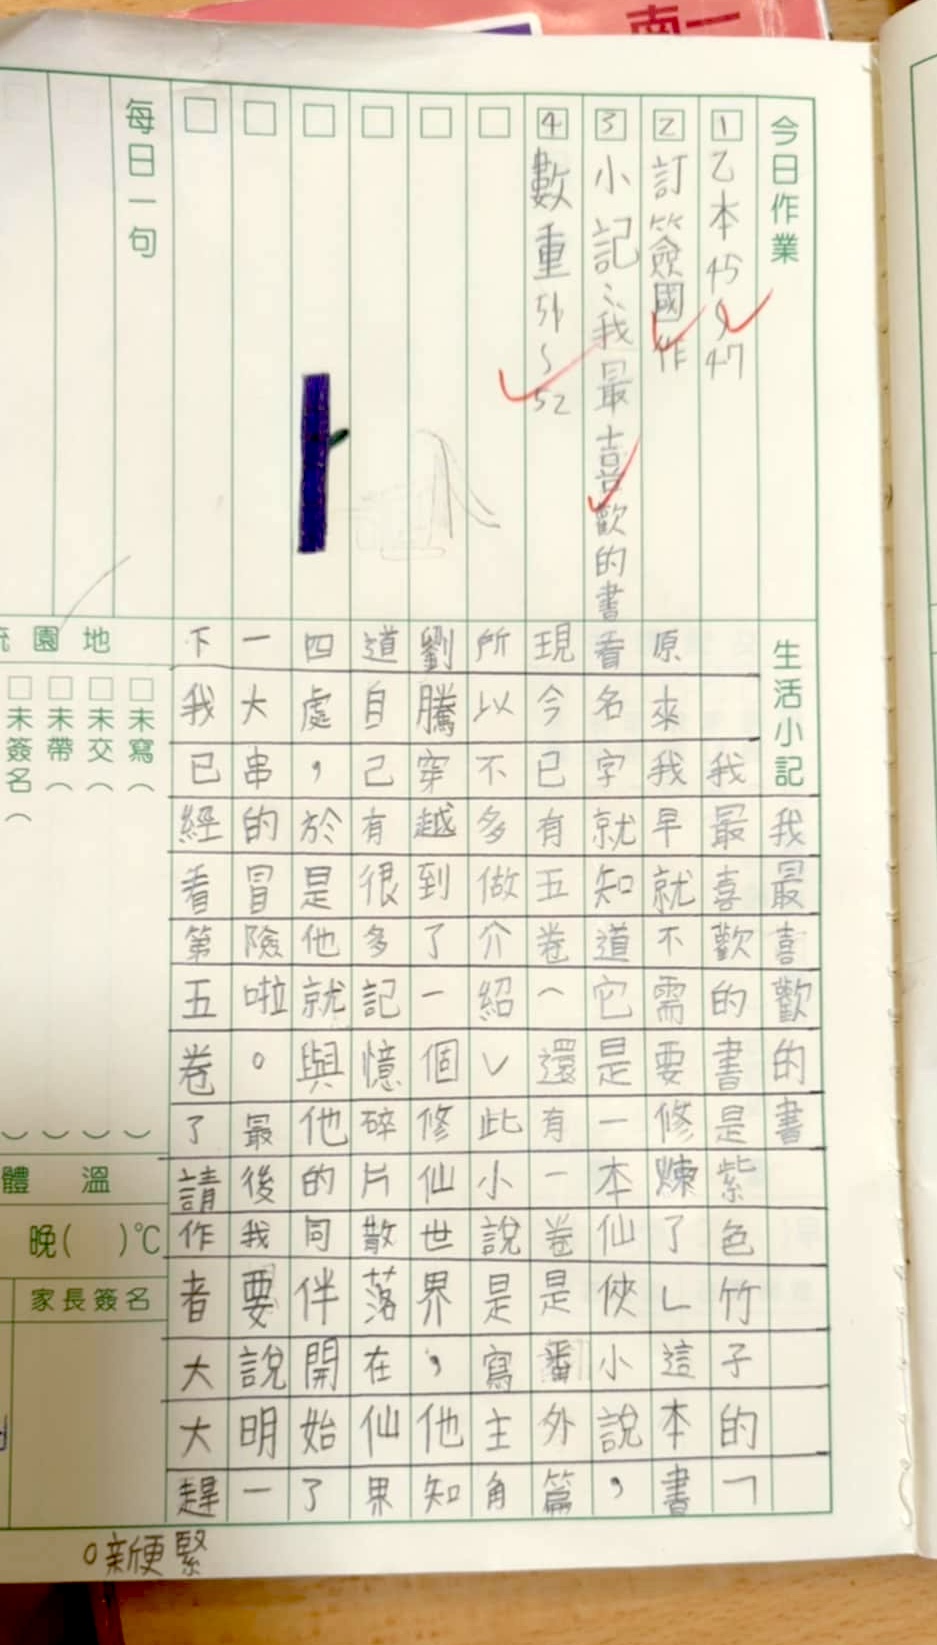 南一
今日作業
1 乙本45~47
2 訂簽國作
3 小記:我最喜歡的書
4 數重51~52
每日一句
生活小記 我最喜歡的書
我最喜歡的書是紫色竹子的「
原來我早就不需要修煉了」這本書
看名字就知道它是一本仙俠小說，
現今已有五卷（還有一卷是番外篇
所以不多做介紹）此小說是寫主角
劉騰穿越到了一個修仙世界，他知
道自己有很多記憶碎片散落在仙界
四處，於是他就與他的同伴開始了
一大串的冒險啦。最後我要說明一
下我已經看第五卷了請作者大大趕
緊便新。
園地
未寫（ ）
未交（ ）
未帶（ ）
未簽名（ ）
體溫
晚( )°C
家長簽名